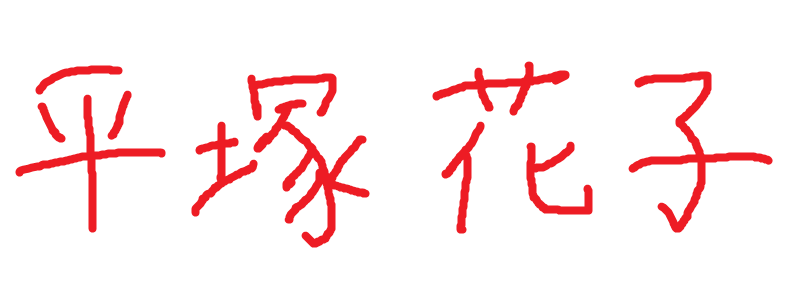 平塚 花子